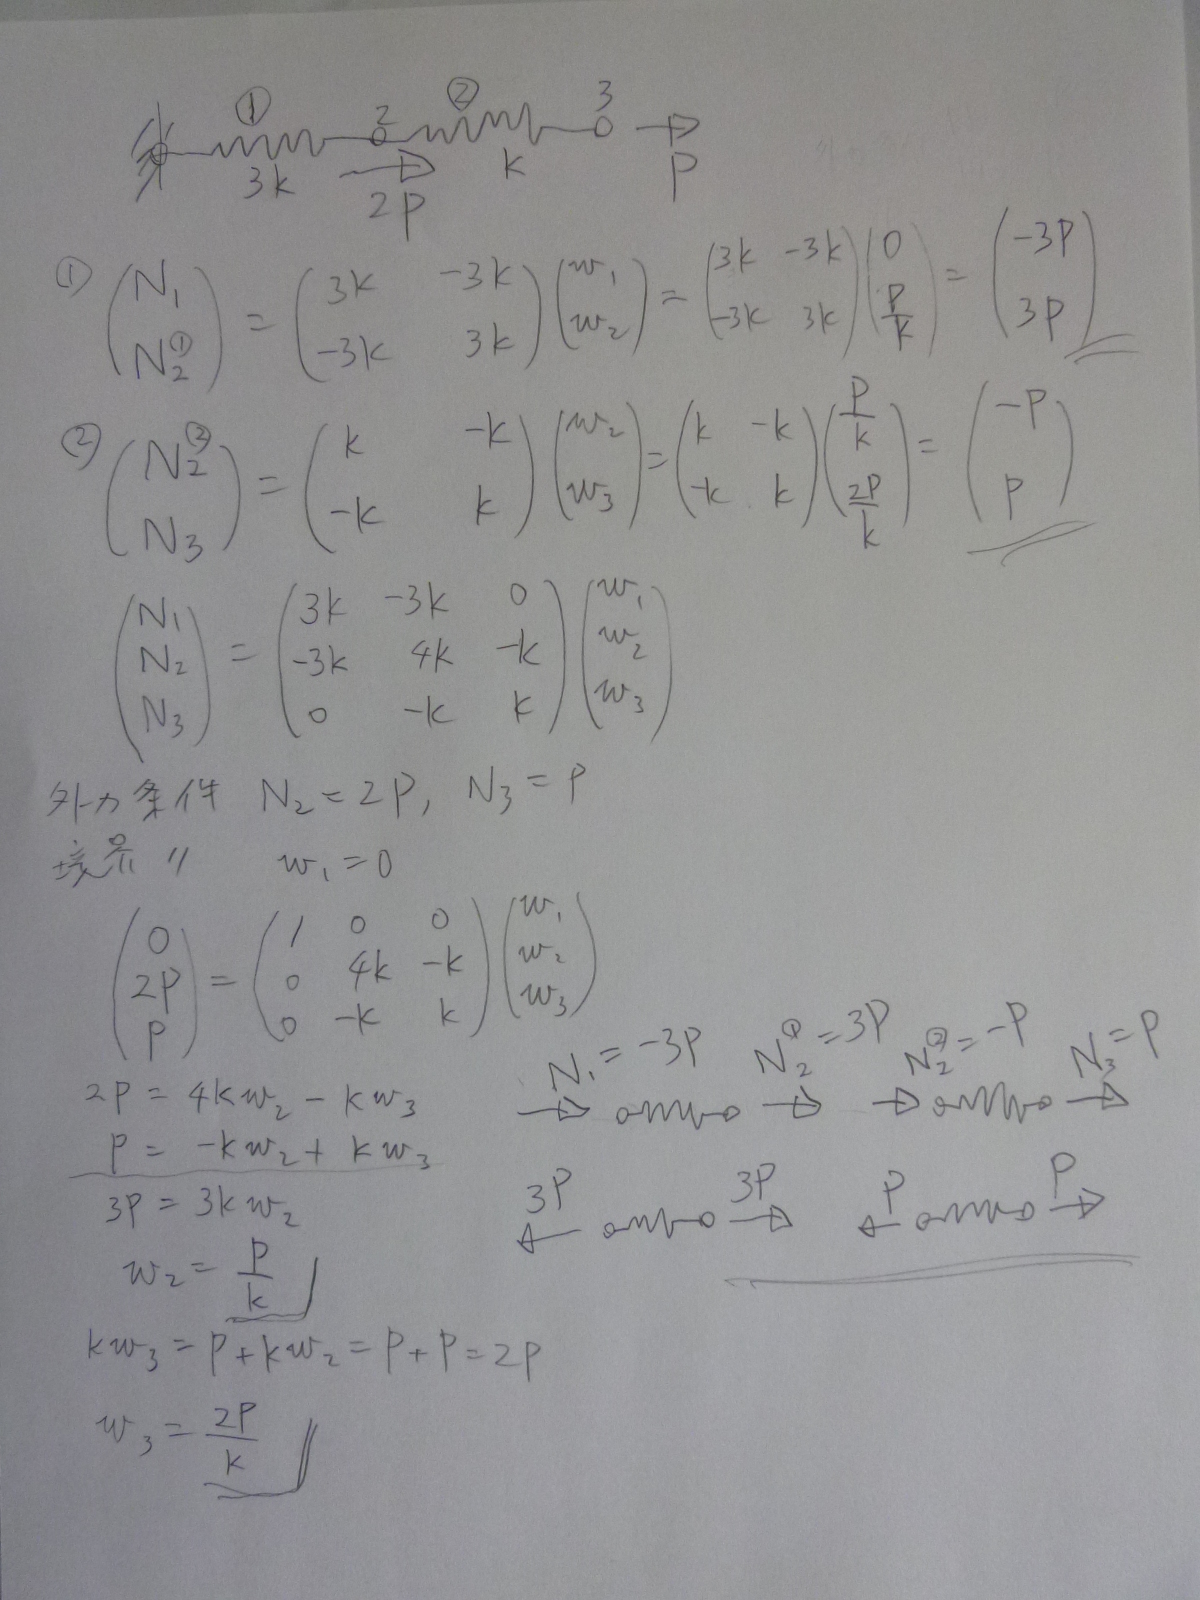 ① 2 ② 3
3k 2P k P
① (N₁ N₂^①) = (3k -3k -3k 3k)(w₁ w₂) = (3k -3k -3k 3k)(0 P/k) = (-3P 3P)
② (N₂^② N₃) = (k -k -k k)(w₂ w₃) = (k -k -k k)(P/k 2P/k) = (-P P)
(N₁ N₂ N₃) = (3k -3k 0 -3k 4k -k 0 -k k)(w₁ w₂ w₃)
外力条件 N₂=2P, N₃=P
境界 〃 w₁=0
(0 2P P) = (1 0 0 0 4k -k 0 -k k)(w₁ w₂ w₃)
2P = 4kw₂ - kw₃
P = -kw₂ + kw₃
3P = 3kw₂
w₂ = P/k
kw₃ = P+kw₂ = P+P = 2P
w₃ = 2P/k
N₁=-3P N₂^①=3P N₂^②=-P N₃=P
3P 3P P P